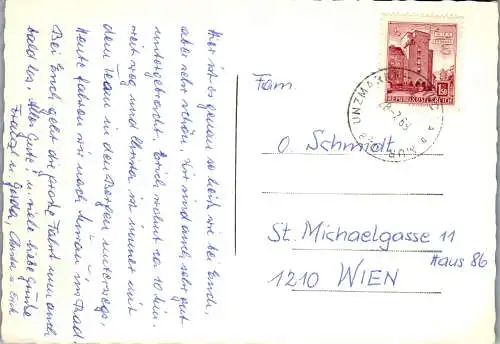 Hier ist es genau so heiß wie bei Euch,
aber sehr schön. Wir sind auch sehr gut
untergebracht. Erich wohnt ca 10 Min.
weit weg und Christa ist immer mit
dem Team in den Bergen unterwegs,
Heute fahren wir nach Murau im Trad.
Bei Euch geht die große Fahrt nun auch
bald los. Alles Gute! u. viele liebe Grüße
Gerda, u Erich
REPUBLIK ÖSTERREICH
1.50
UNZMARKT
MUR
Fam.
O. Schmidt
St. Michaelgasse 11
Haus 86
1210 WIEN